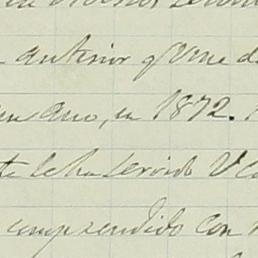 anterior q Une d
un ano, en 1872.
te le ha servido V
comprendido con